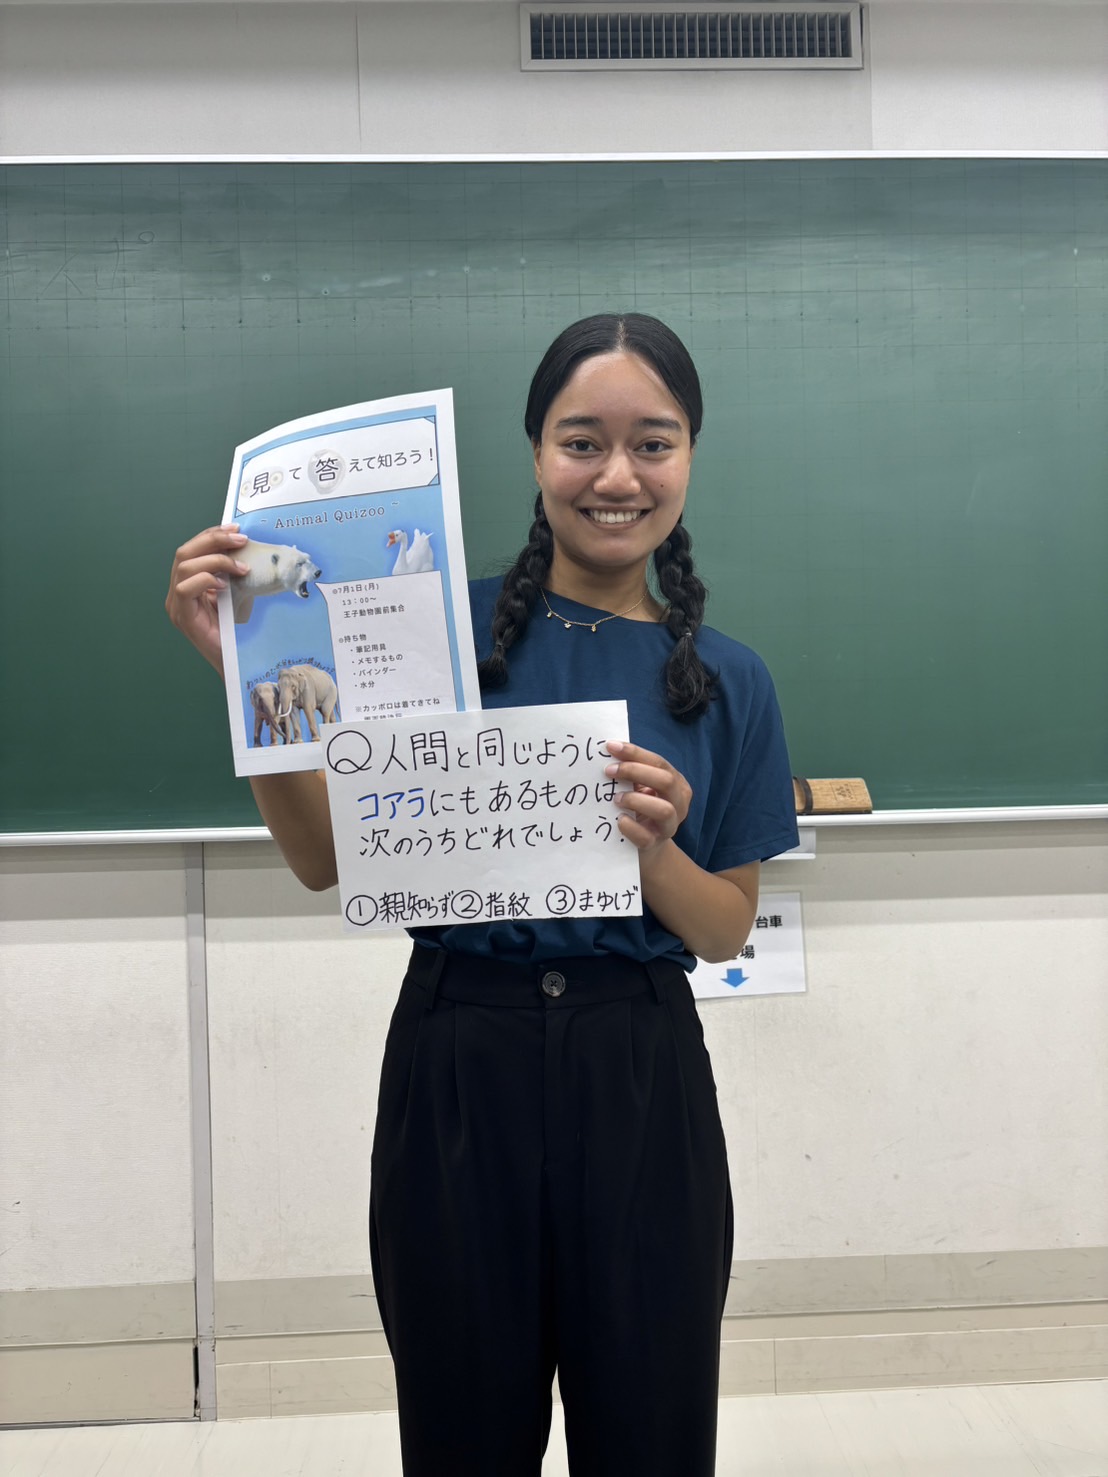 見て答えて知ろう！
~ Animal Quizoo ~
◎7月1日(月)
13：00～
王子動物園前集合
◎持ち物
・筆記用具
・メモするもの
・バインダー
・水分
※カッポロは着てきてね
Q人間と同じように
コアラにもあるものは
次のうちどれでしょう?
①親知らず②指紋 ③まゆげ
台車
場